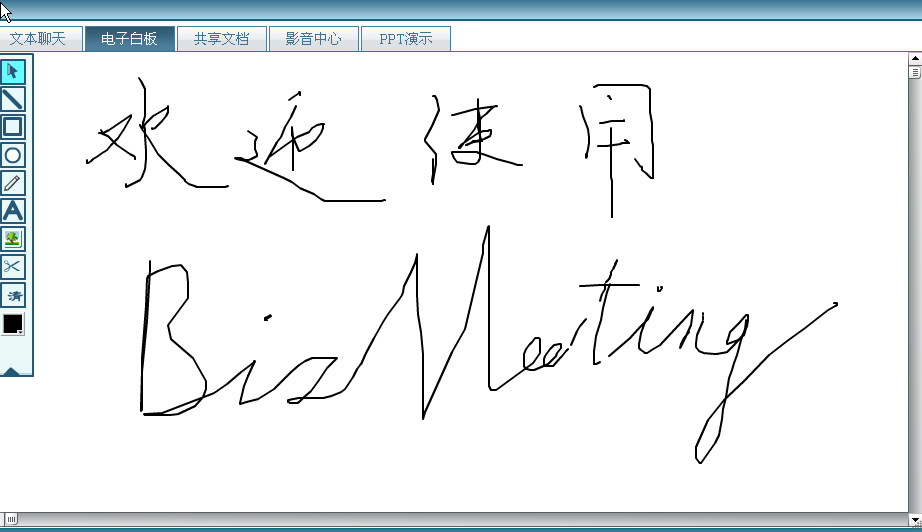 文本聊天 电子白板 共享文档 影音中心 PPT演示
欢迎使用
BizMeeting
A
清